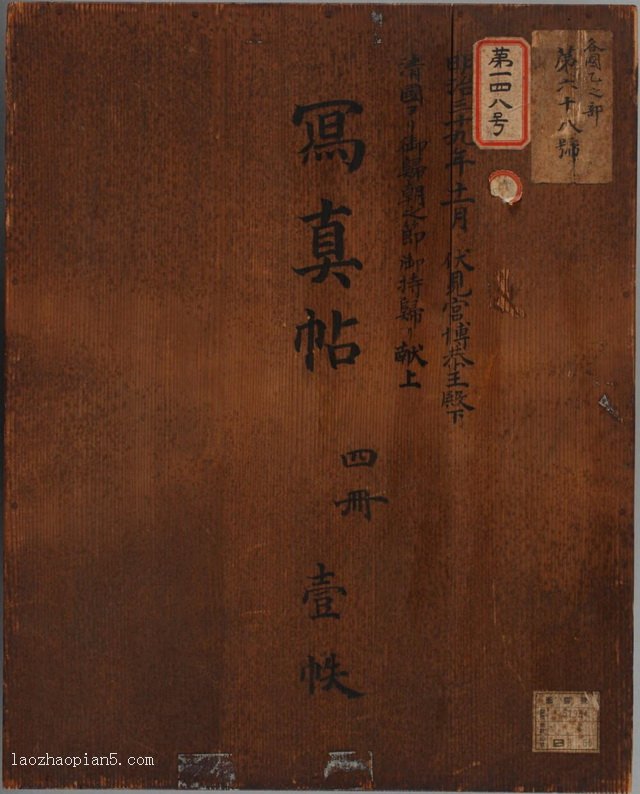 各國乙之部
第六十八號
第一四八号
明治三十九年十一月 伏見宮博恭王殿下
清國ヨリ御歸朝之節御持歸リ献上
寫真帖
四冊
壹帙
laozhaopian5.com